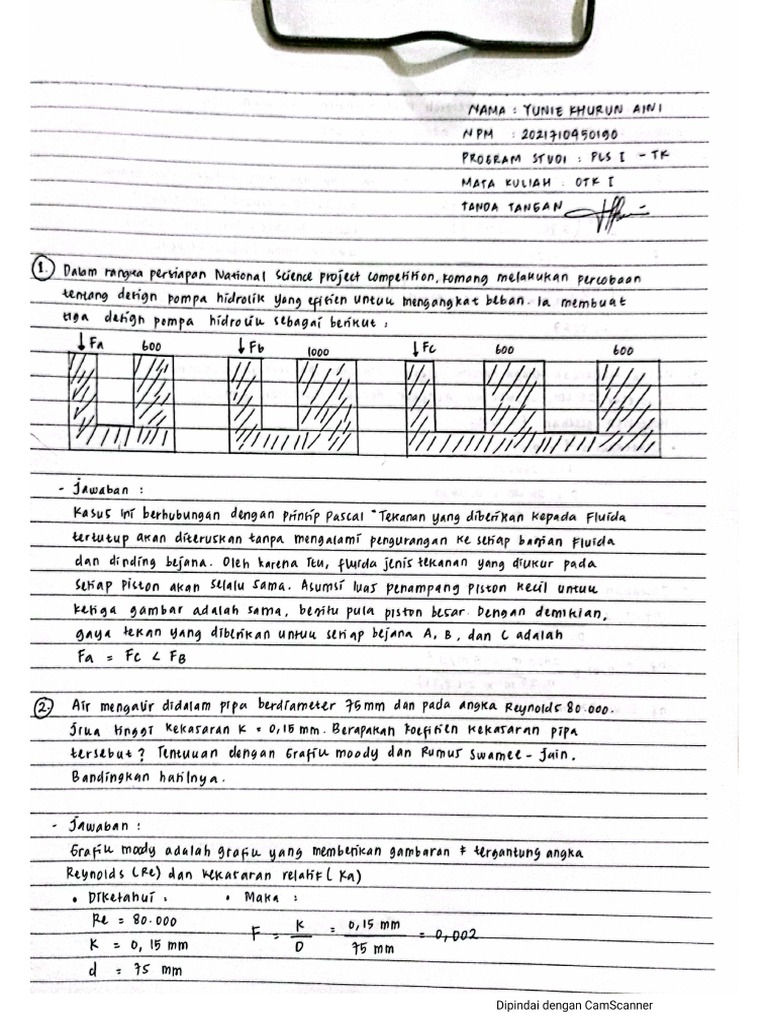 NAMA : YUNIE KHURUN AINI
NPM : 2021710450190
PROGRAM STUDI : PLS I - TK
MATA KULIAH : OTK I
TANDA TANGAN
1. Dalam rangka persiapan National Science Project Competition, Komang melakukan percobaan
tentang design pompa hidrolik yang efisien untuk mengangkat beban. Ia membuat
tiga design pompa hidrolik sebagai berikut :
↓ Fa 600 ↓ Fb 1000 ↓ Fc 600 600
- Jawaban :
Kasus ini berhubungan dengan prinsip Pascal "Tekanan yang diberikan kepada Fluida
tertutup akan diteruskan tanpa mengalami pengurangan ke setiap bagian Fluida
dan dinding bejana. Oleh karena itu, fluida jenis tekanan yang diukur pada
setiap piston akan selalu sama. Asumsi luas penampang piston kecil untuk
ketiga gambar adalah sama, begitu pula piston besar. Dengan demikian,
gaya tekan yang diberikan untuk setiap bejana A, B, dan C adalah
Fa = Fc < FB
2. Air mengalir didalam pipa berdiameter 75 mm dan pada angka Reynolds 80.000.
Jika tinggi kekasaran K = 0,15 mm. Berapakah koefisien kekasaran pipa
tersebut ? Tentukan dengan Grafik moody dan Rumus Swamee - Jain.
Bandingkan hasilnya.
- Jawaban :
Grafik moody adalah grafik yang memberikan gambaran F tergantung angka
Reynolds (Re) dan kekasaran relatif ( Ka)
• Diketahui : • Maka :
Re = 80.000
K = 0,15 mm
d = 75 mm
F = K/D = 0,15 mm/75 mm = 0,002
Dipindai dengan CamScanner